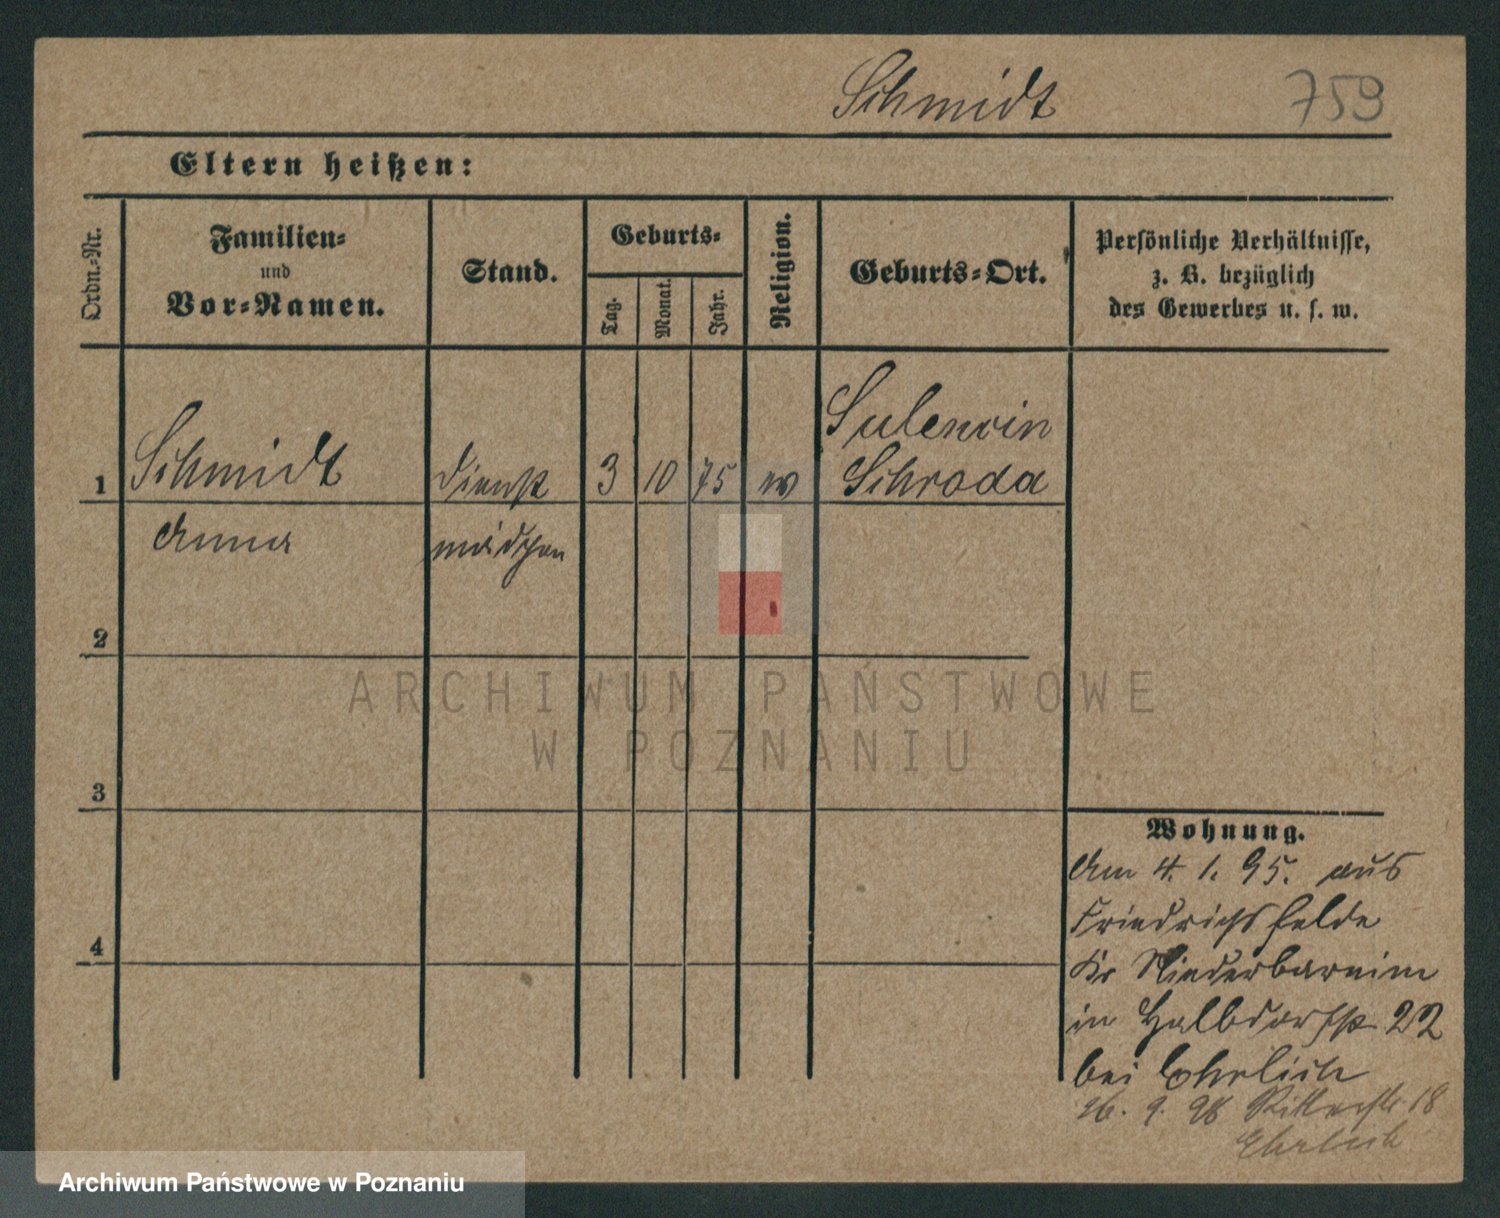 Schmidt 759
Eltern heißen:
Ordn.-Nr.
Familien-
und
Vor-Namen.
Stand.
Geburts-
Tag.
Monat.
Jahr.
Religion.
Geburts-Ort.
Persönliche Verhältnisse,
z. B. bezüglich
des Gewerbes u. s. w.
1 Schmidt Dienst 3 10 75 ev Sulencin
Schroda
Anna mädchen
2
3
4
Wohnung.
Am 4. 1. 95. aus
Friedrichsfelde
Kr Niederbarnim
in Halbdorfstr 22
bei Ehrlich
26. 9. 98 Ritterstr 18
Ehrlich
ARCHIWUM PAŃSTWOWE
W POZNANIU
Archiwum Państwowe w Poznaniu